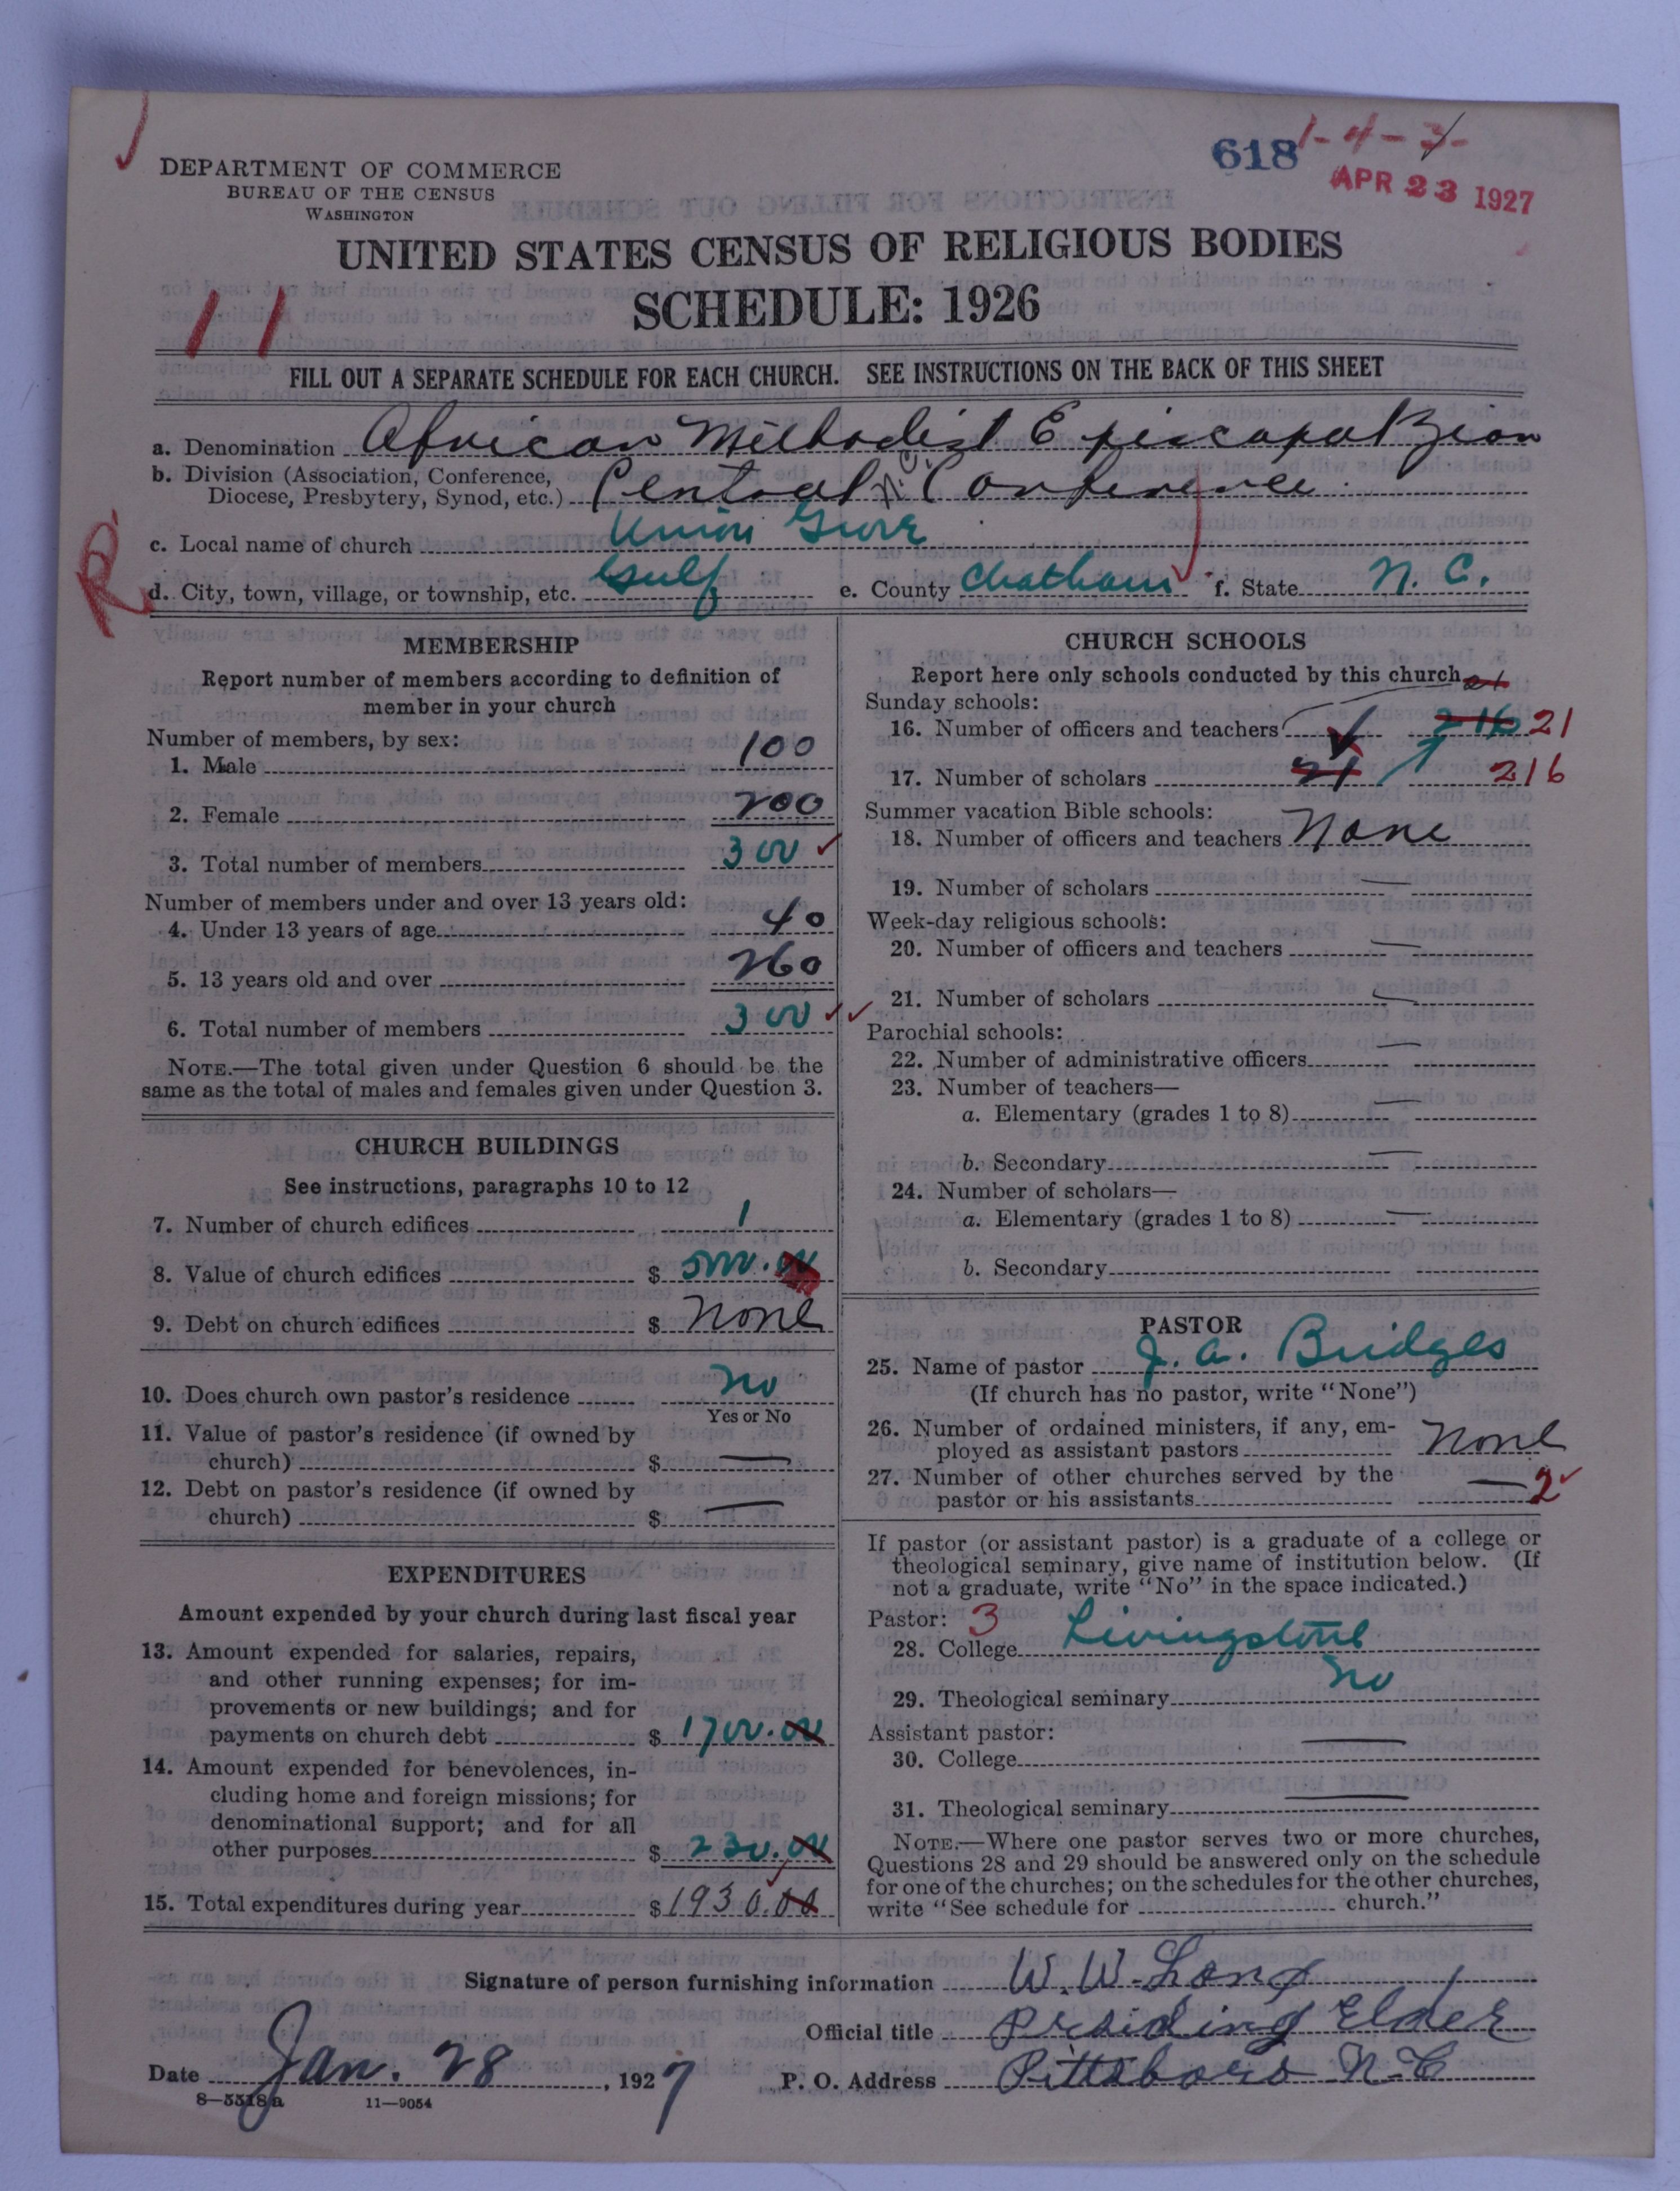 618 1-4-3-
APR 23 1927
DEPARTMENT OF COMMERCE
BUREAU OF THE CENSUS
WASHINGTON
UNITED STATES CENSUS OF RELIGIOUS BODIES
SCHEDULE: 1926
11
FILL OUT A SEPARATE SCHEDULE FOR EACH CHURCH. SEE INSTRUCTIONS ON THE BACK OF THIS SHEET
a. Denomination African Methodist Episcopal Zion
b. Division (Association, Conference,
Diocese, Presbytery, Synod, etc.) Central N.C. Conference
c. Local name of church Union Grove
R.
d. City, town, village, or township, etc. Gulf e. County Chatham f. State N. C.
MEMBERSHIP
Report number of members according to definition of
member in your church
Number of members, by sex:
1. Male 100
2. Female 200
3. Total number of members 300
Number of members under and over 13 years old:
4. Under 13 years of age 40
5. 13 years old and over 260
6. Total number of members 300
NOTE.—The total given under Question 6 should be the
same as the total of males and females given under Question 3.
CHURCH BUILDINGS
See instructions, paragraphs 10 to 12
7. Number of church edifices 1
8. Value of church edifices $ 5000.00
9. Debt on church edifices $ None
10. Does church own pastor's residence No
Yes or No
11. Value of pastor's residence (if owned by
church) $ —
12. Debt on pastor's residence (if owned by
church) $ —
EXPENDITURES
Amount expended by your church during last fiscal year
13. Amount expended for salaries, repairs,
and other running expenses; for im-
provements or new buildings; and for
payments on church debt $ 1700.00
14. Amount expended for benevolences, in-
cluding home and foreign missions; for
denominational support; and for all
other purposes $ 230.00
15. Total expenditures during year $ 1930.00
CHURCH SCHOOLS
Report here only schools conducted by this church 21
Sunday schools:
16. Number of officers and teachers 216 21
17. Number of scholars 21 216
Summer vacation Bible schools:
18. Number of officers and teachers None
19. Number of scholars —
Week-day religious schools:
20. Number of officers and teachers —
21. Number of scholars —
Parochial schools:
22. Number of administrative officers —
23. Number of teachers—
a. Elementary (grades 1 to 8) —
b. Secondary —
24. Number of scholars—
a. Elementary (grades 1 to 8) —
b. Secondary
PASTOR
25. Name of pastor J. A. Bridges
(If church has no pastor, write "None")
26. Number of ordained ministers, if any, em-
ployed as assistant pastors None
27. Number of other churches served by the
pastor or his assistants — 2
If pastor (or assistant pastor) is a graduate of a college or
theological seminary, give name of institution below. (If
not a graduate, write "No" in the space indicated.)
Pastor: 3
28. College Livingstone
29. Theological seminary No
Assistant pastor:
30. College —
31. Theological seminary —
NOTE.—Where one pastor serves two or more churches,
Questions 28 and 29 should be answered only on the schedule
for one of the churches; on the schedules for the other churches,
write "See schedule for church."
Signature of person furnishing information W. W. Long
Official title Presiding Elder
Date Jan. 28, 1927 P. O. Address Pittsboro N.C
8—5518a 11—9054